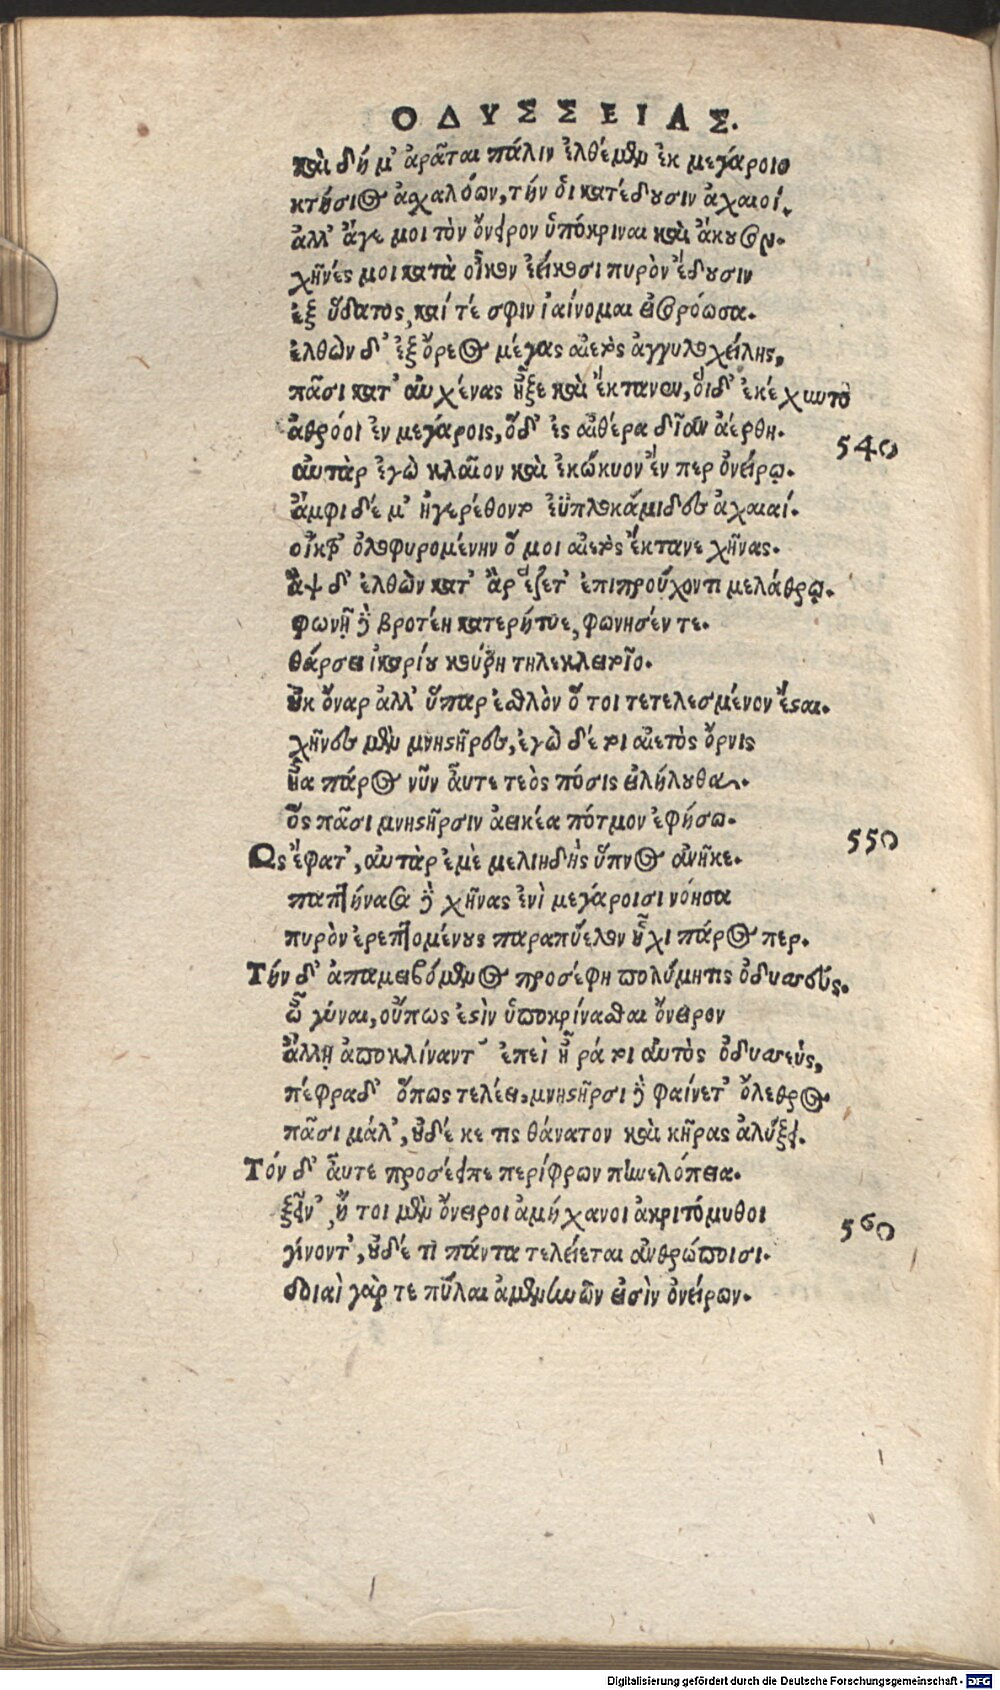 ΟΔΥΣΣΕΙΑΣ.
καὶ δή μ' ἀρᾶται πάλιν ἐλθέμεν ἐκ μεγάροιο
κτήσιος ἀσχαλόων, τήν οἱ κατέδουσιν ἀχαιοί,
ἀλλ' ἄγε μοι τὸν ὄνειρον ὑπόκριναι καὶ ἄκουσον.
χῆνές μοι κατὰ οἶκον ἐείκοσι πυρὸν ἔδουσιν
ἐξ ὕδατος, καί τέ σφιν ἰαίνομαι εἰσορόωσα.
ἐλθὼν δ' ἐξ ὄρεος μέγας αἰετὸς ἀγγυλοχείλης,
πᾶσι κατ' αὐχένας ἦξε καὶ ἔκτανεν, οἱ δ' ἐκέχυντο
ἀθρόοι ἐν μεγάροις, ὁ δ' ἐς αἰθέρα δῖαν ἀέρθη.
540
αὐτὰρ ἐγὼ κλαῖον καὶ ἐκώκυον ἔν περ ὀνείρῳ.
ἀμφὶ δέ μ' ἠγερέθοντο ἐϋπλοκάμιδες ἀχαιαί.
οἴκτρ' ὀλοφυρομένην ὅ μοι αἰετὸς ἔκτανε χῆνας.
ἂψ δ' ἐλθὼν κατ' ἂρ ἕζετ' ἐπιπροὔχοντι μελάθρῳ.
φωνῇ δὲ βροτέῃ κατερήτυε, φώνησέν τε.
θάρσει ἰκαρίου κούρη τηλεκλειτοῖο.
οὐκ ὄναρ ἀλλ' ὕπαρ ἐσθλὸν ὅ τοι τετελεσμένον ἔσται.
χῆνες μὲν μνηστῆρες, ἐγὼ δέ τοι αἰετὸς ὄρνις
ἦα πάρος νῦν αὖτε τεὸς πόσις εἰλήλουθα.
ὃς πᾶσι μνηστῆρσιν ἀεικέα πότμον ἐφήσω.
550
Ως ἔφατ', αὐτὰρ ἐμὲ μελιηδὴς ὕπνος ἀνῆκε.
παπτήνασα δὲ χῆνας ἐνὶ μεγάροισι νόησα
πυρὸν ἐρεπτομένους παρὰ πύελον ἧχι πάρος περ.
Τὴν δ' ἀπαμειβόμενος προσέφη πολύμητις ὀδυσσεύς.
ὦ γύναι, οὔπως ἐστὶν ὑποκρίνασθαι ὄνειρον
ἄλλῃ ἀποκλίναντ' ἐπεὶ ἦ ῥά τοι αὐτὸς ὀδυσσεύς,
πέφραδ' ὅπως τελέει, μνηστῆρσι δὲ φαίνετ' ὄλεθρος
πᾶσι μάλ', οὐδέ κε τις θάνατον καὶ κῆρας ἀλύξει.
Τὸν δ' αὖτε προσέειπε περίφρων πηνελόπεια.
ξεῖν', ἤ τοι μὲν ὄνειροι ἀμήχανοι ἀκριτόμυθοι
560
γίνοντ', οὐδέ τι πάντα τελείεται ἀνθρώποισι.
δοιαὶ γάρ τε πύλαι ἀμενηνῶν εἰσὶν ὀνείρων.
Digitalisierung gefördert durch die Deutsche Forschungsgemeinschaft - DFG